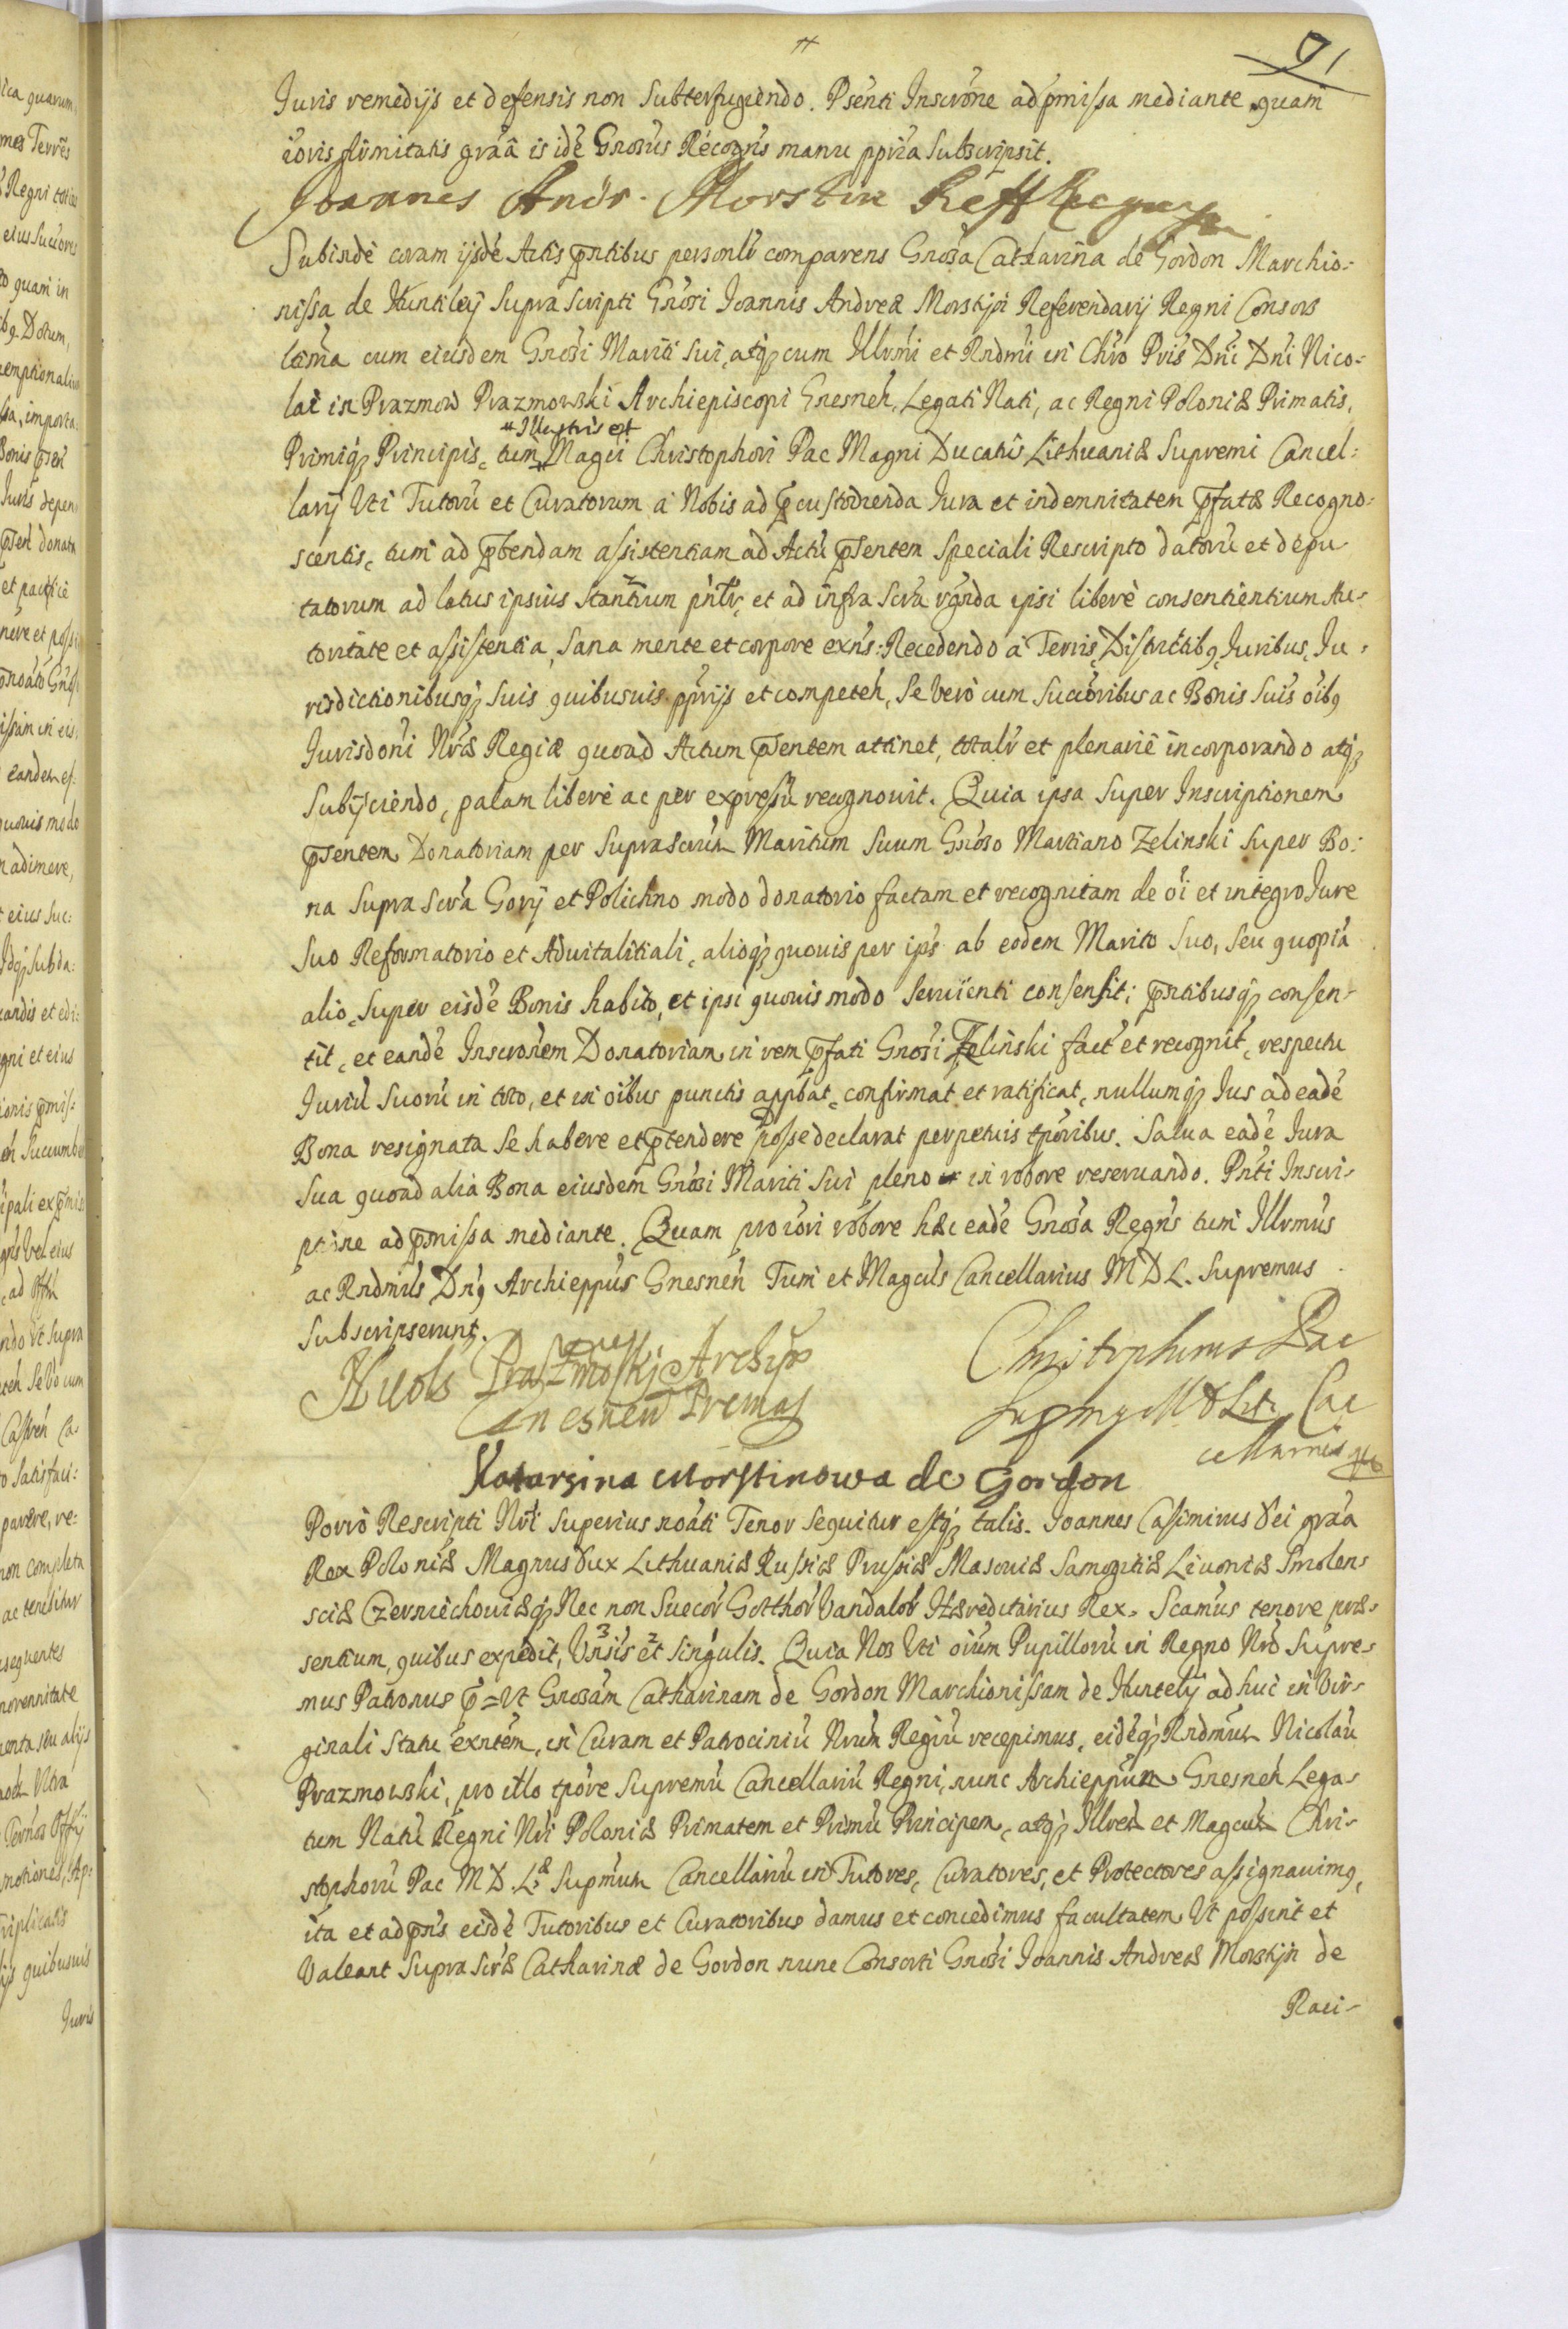 91
Juris remedijs et defensis non Subterfugiendo. Psenti Inscrõne ad p̄missa mediante quam
eõvis firmitatis grãa is idẽ Gnosus Recogns manu ppria Subscripsit.
Joannes Andr. Morstin Reff
Subindè coram ijsdẽ Actis p̄ntibus personlr comparens Gnosa Catharina de Gordon Marchio=
nissa de Huntileij Supra scripti Gnosi Joannis Andreæ Morstijn Referendarij Regni Consors
ltima cum eiusdem Gnosi Mariti Sui, atq3 cum Illvmi et Rndmi in Chro Pris Dni Dni Nico=
lai in Prazmow Prazmowski Archiepiscopi Gnesneñ, Legati Nati, ac Regni Poloniæ Primatis,
Primiq3 Principis, tum Illustris et Magci Christophori Pac Magni Ducatus Lithuaniæ Supremi Cancel=
larij Uti Tutorũ et Curatorum à Nobis ad p̄custodienda Jura et indemnitatem p̄fatæ Recogno=
scentis, tum ad p̄bendam assistentiam ad Actũ p̄sentem Speciali Rescripto datorũ et depu
tatorum ad latus ipsius Stantium pntlr, et ad infra Scra rgnda ipsi liberè consentientium Au=
toritate et assistentia, Sana mente et corpore exns: Recedendo à Terris, Districtibq, Juribus, Ju=
risdictionibusq3 Suis quibusuis pprijs et competeñ, Se verò cum Succoribus ac Bonis Suis oibq
Jurisdoni Nræ Regiæ quoad Actum p̄sentem attinet, totalr et plenariè incorporando atq3
Subijciendo, palam liberè ac per expressũ recognouit. Quia ipsa Super Inscriptionem
p̄sentem Donatoriam per Suprascrũm Maritum Suum Gnoso Martiano Zelinski Super Bo=
na Supra scra Gorij et Polichno modo donatorio factam et recognitam de oi et integro Jure
Suo Reformatorio et Aduitalitiali, alioq3 quouis per ips ab eodem Marito Suo, Seu quopiã
alio, Super eisdẽ Bonis habito, et ipsi quouis modo Seruienti consensit; p̄ntibusq3 consen=
tit, et eandẽ Inscronem Donatoriam in rem p̄fati Gnosi Zelinski fact et recognit, respectu
Juriũ Suorũ in toto, et in oibus punctis appbat, confirmat et ratificat, nullumq3 Jus ad eadẽ
Bona resignata Se habere et p̄tendere posse declarat perpetuis tporibus. Salua eadẽ Jura
Sua quoad alia Bona eiusdem Gnosi Mariti Sui pleno in robore reseruando. Pnti Inscri=
ptione ad p̄missa mediante. Quam pro robore hæc eadẽ Gnosa Regns tum Illvmus
ac Rndmus Dnq Archieppus Gnesneñ Tum et Magcus Cancellarius M D L. Supremus
Subscripserunt.
Nicols Prazmoskj Archjp
Gnesnen Primas
Christophorus Pac
Supmq M D Lit Can
cellarius
Katarzina Morstinowa de Gordon
Porrò Rescripti Nri Superius noati Tenor Sequitur estq3 talis. Joannes Casimirus Dei grãa
Rex Poloniæ Magnus Dux Lithuaniæ Russiæ Prussiæ Masouiæ Samogitiæ Liuoniæ Smolen=
sciæ Czerniechouiæq3 Nec non Suecor Gotthor Vandalor Hæreditarius Rex. Scamus tenore præ=
sentium, quibus expedit, Vnsis 3 et 2 Singulis. Quia Nos Vti oium Pupillorũ in Regno Nro Supre=
mus Patronus p̄=Vt Gnosam Catharinam de Gordon Marchionissam de Huntelij ad huc in Vir=
ginali Statu exntem, in Curam et Patrociniũ Nrum Regiũ recepimus, eidẽq3 Rndmum Nicolaũ
Prazmowski, pro illo tpore Supremũ Cancellariũ Regni, nunc Archieppum Gnesneñ Lega=
tum Natũ Regni Nri Poloniæ Primatem et Primũ Principem, atq3 Illrem et Magcum Chri=
stophorũ Pac M D Læ Supmum Cancellariũ in Tutores, Curatores, et Protectores assignauimq,
ita et ad p̄ns eisdẽ Tutoribus et Curatoribus damus et concedimus facultatem Vt possint et
Valeant Supra Scræ Catharinæ de Gordon nunc Consorti Gnosi Joannis Andreæ Morstijn de
Raci=